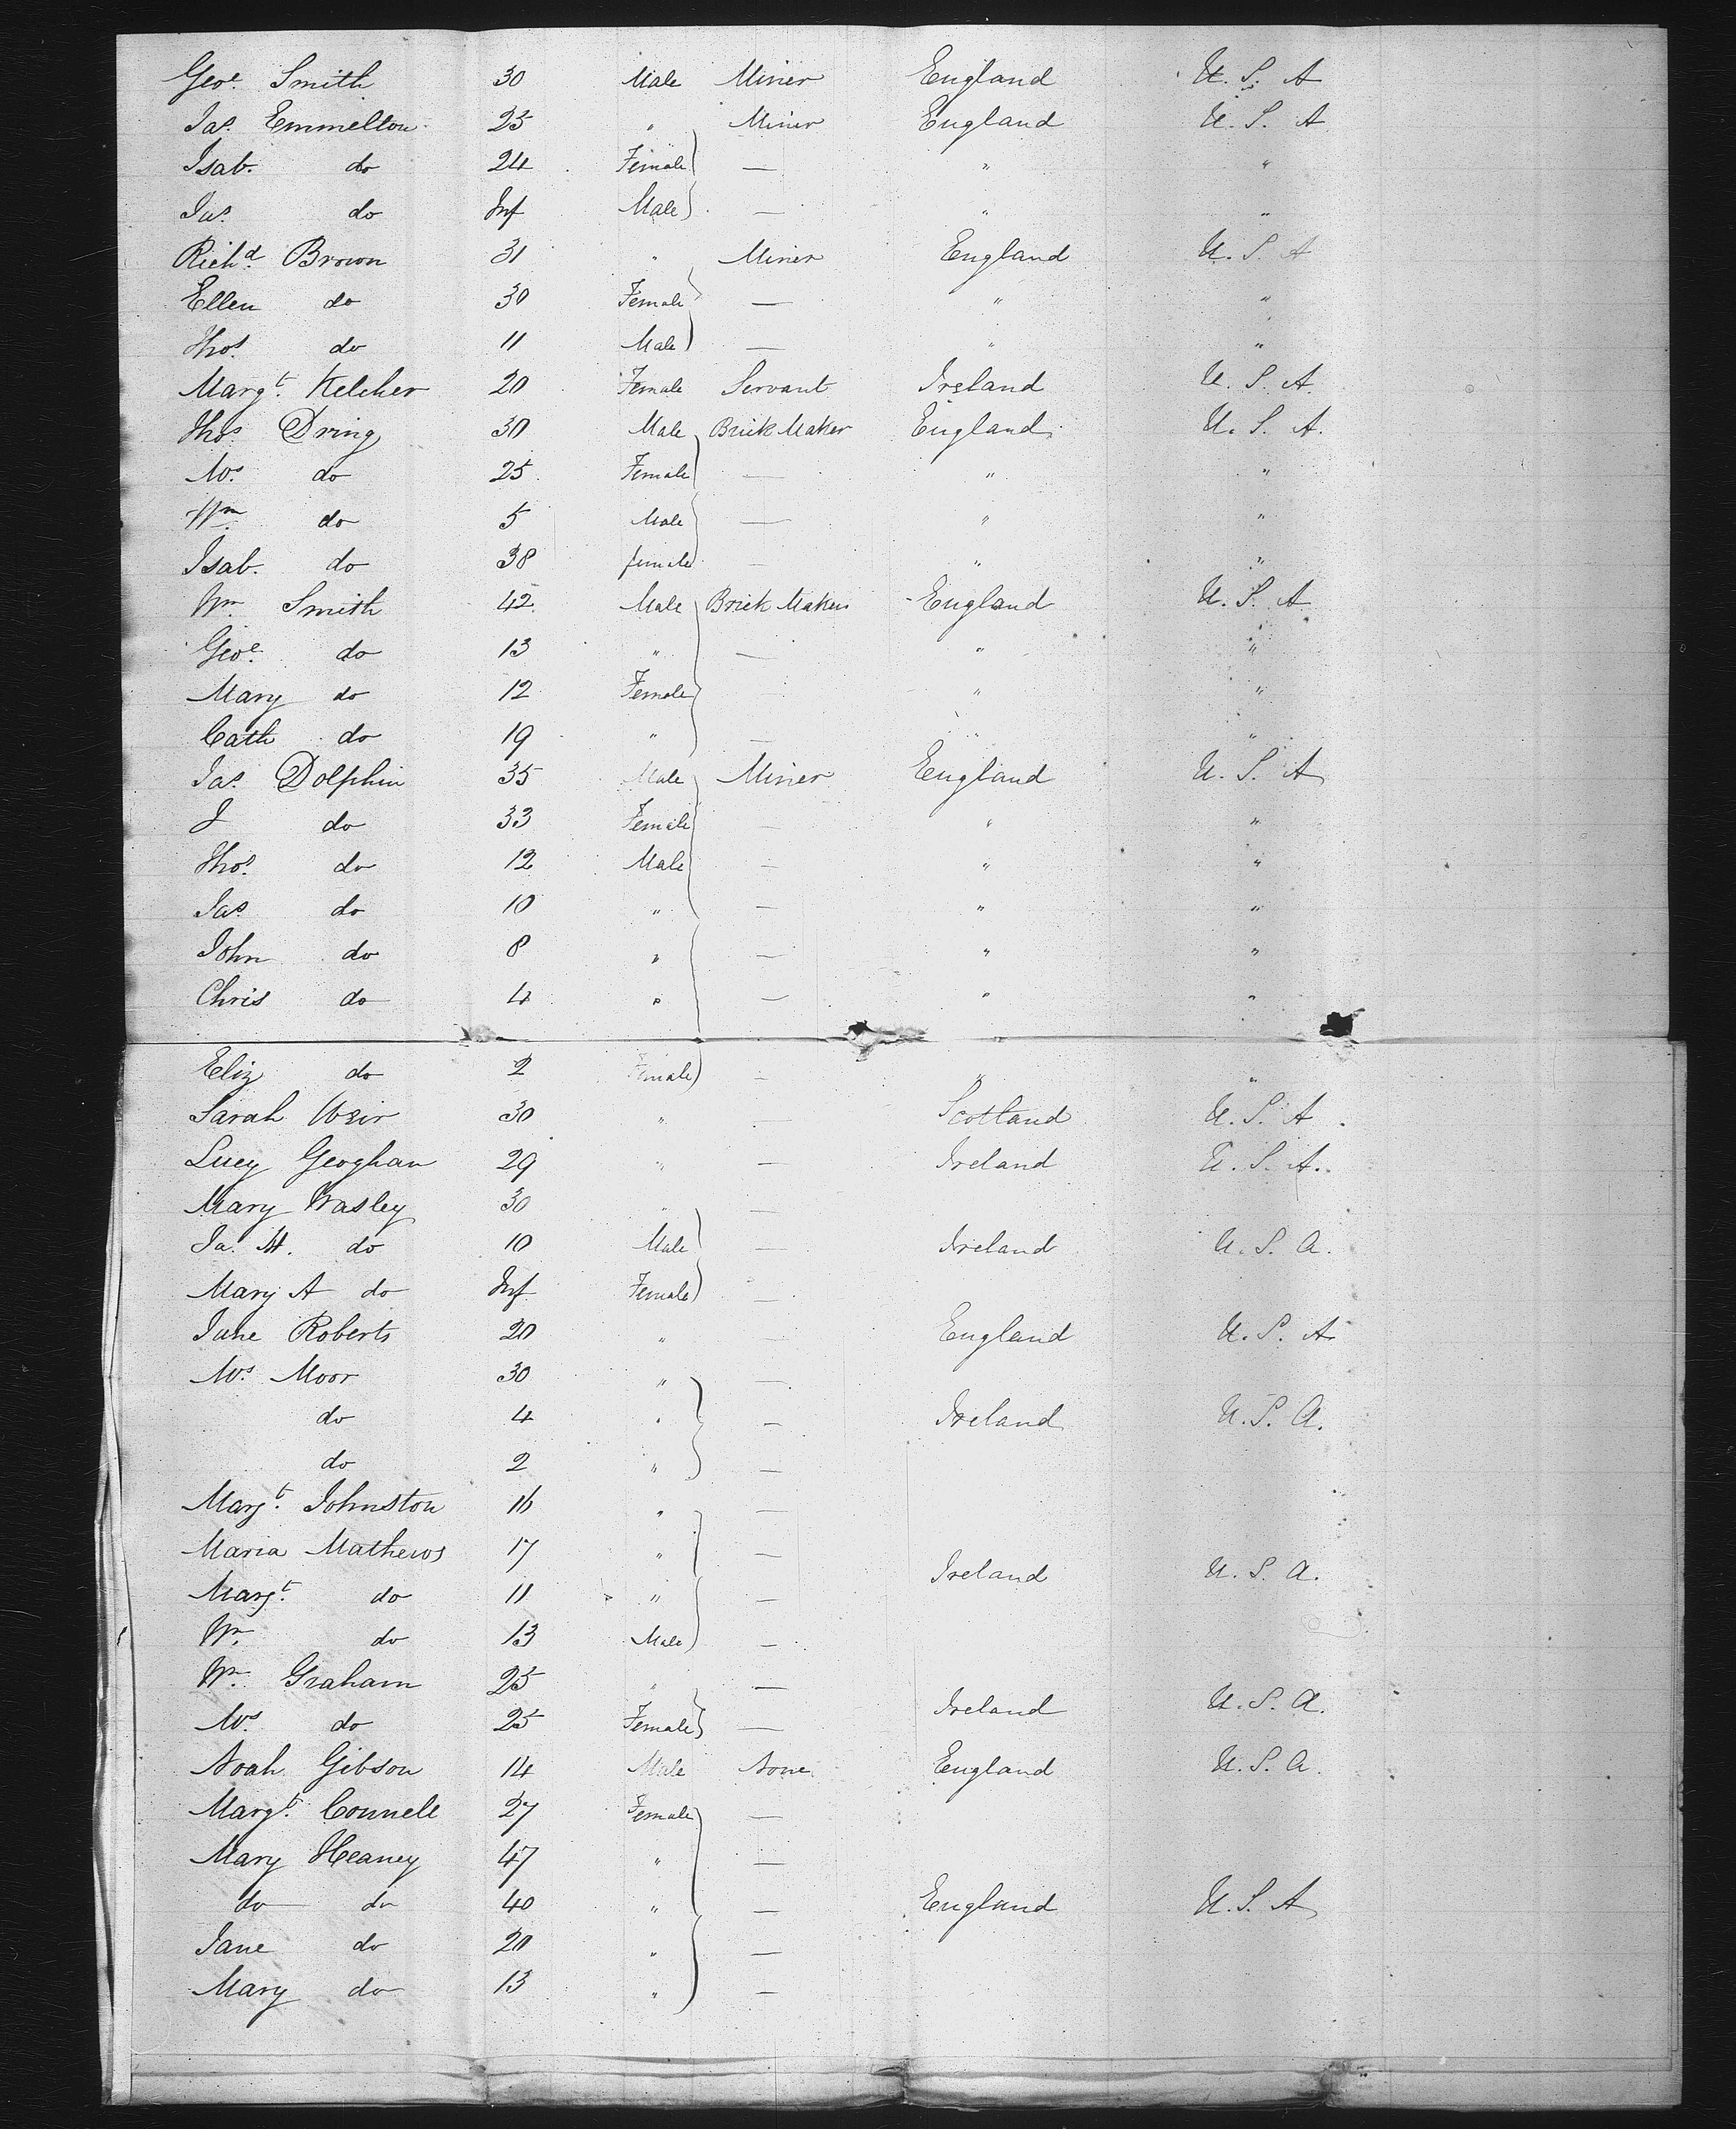 Geo. Smith 30 Male Miner England U. S. A
Jas. Emmelton 25 " Miner England U. S. A
Isab. do 24 Female — " "
Jas. do Inf Male — " "
Richd. Brown 31 " Miner England U. S. A
Ellen do 30 Female — " "
Thos. do 11 Male — " "
Margt. Kelcher 20 Female Servant Ireland U. S. A.
Thos. Dring 30 Male Brick Maker England U. S. A.
Mrs. do 25 Female — " "
Wm. do 5 Male — " "
Isab. do 38 female — " "
Wm. Smith 42 Male Brick Maker England U. S. A
Geo. do 13 " — " "
Mary do 12 Female " "
Cath do 19 " — " "
Jas. Dolphin 35 Male Miner England U. S. A
J do 33 Female — " "
Thos. do 12 Male — " "
Jas. do 10 " — " "
John do 8 " — " "
Chris do 4 " — " "
Eliz do 2 Female — " "
Sarah Weir 30 " — Scotland U. S. A.
Lucy Geoghan 29 " — Ireland U. S. A.
Mary Wasley 30 " —
Ja. H. do 10 Male — Ireland U. S. A.
Mary A do Inf Female —
Jane Roberts 20 " — England U. S. A
Mrs. Moor 30 " —
do 4 " — Ireland U. S. A.
do 2 " —
Margt. Johnston 16 " —
Maria Mathews 17 " — Ireland U. S. A.
Margt. do 11 " —
Wm. do 13 Male —
Wm. Graham 25 " — Ireland U. S. A.
Mrs. do 25 Female —
Noah Gibson 14 Male None England U. S. A.
Margt. Connell 27 Female —
Mary Heaney 47 " —
do do 40 " — England U. S. A
Jane do 20 " —
Mary do 13 " —